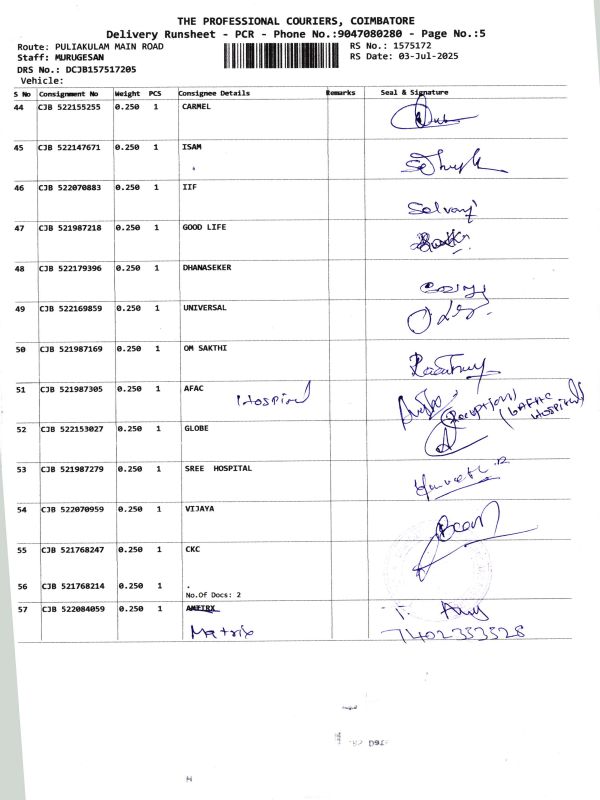 THE PROFESSIONAL COURIERS, COIMBATORE
Delivery Runsheet - PCR - Phone No.:9047080280 - Page No.:5
Route: PULIAKULAM MAIN ROAD RS No.: 1575172
Staff: MURUGESAN RS Date: 03-Jul-2025
DRS No.: DCJB157517205
Vehicle:
S No Consignment No Weight PCS Consignee Details Remarks Seal & Signature
44 CJB 522155255 0.250 1 CARMEL
45 CJB 522147671 0.250 1 ISAM
46 CJB 522070883 0.250 1 IIF
Selvaraj
47 CJB 521987218 0.250 1 GOOD LIFE
48 CJB 522179396 0.250 1 DHANASEKER
49 CJB 522169859 0.250 1 UNIVERSAL
50 CJB 521987169 0.250 1 OM SAKTHI
51 CJB 521987305 0.250 1 AFAC
Hospital
(Reception)
HOSPITAL)
52 CJB 522153027 0.250 1 GLOBE
53 CJB 521987279 0.250 1 SREE HOSPITAL
54 CJB 522070959 0.250 1 VIJAYA
55 CJB 521768247 0.250 1 CKC
56 CJB 521768214 0.250 1 .
No.Of Docs: 2
57 CJB 522084059 0.250 1
Matrix 7402353528